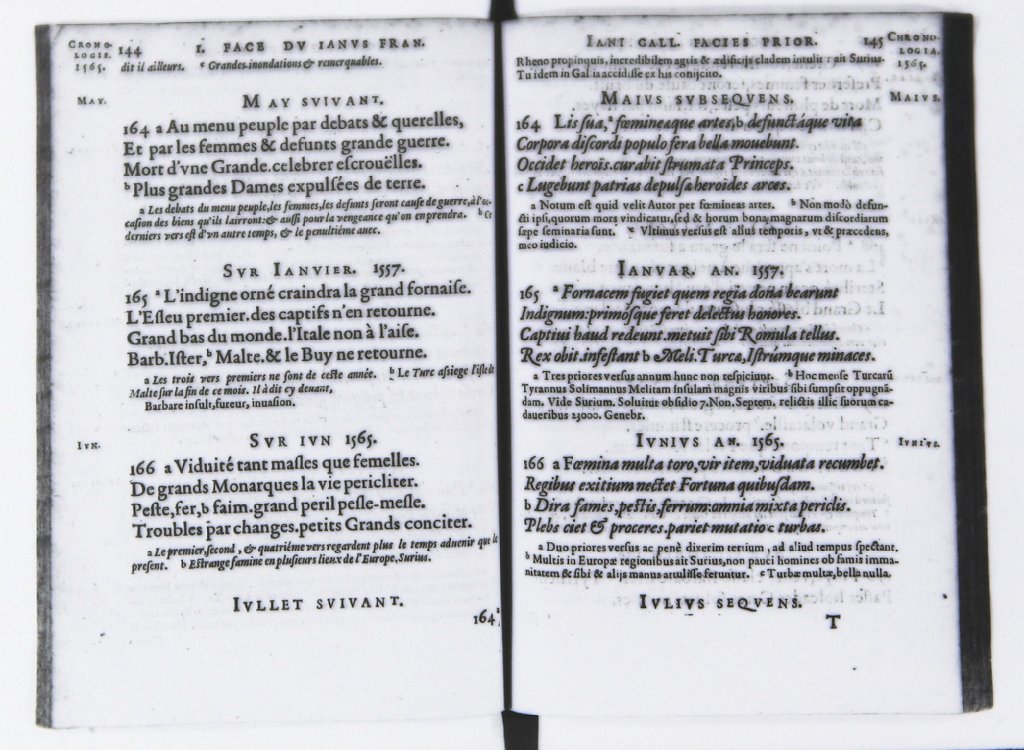 CRONO-
LOGIE.
1565.
144 I. FACE DV IANVS FRAN.
dit il ailleurs. c Grandes inondations & remerquables.
MAY.
MAY SVIVANT.
164 a Au menu peuple par debats & querelles,
Et par les femmes & defunts grande guerre.
Mort d'vne Grande.celebrer escrouëlles.
b Plus grandes Dames expulsées de terre.
a Les debats du menu peuple, les femmes, les defunts seront cause de guerre, à l'oc-
casion des biens qu'ils lairront: & aussi pour la vengeance qu'on en prendra. b Ce
derniers vers est d'vn autre temps, & le penultiéme auec.
SVR IANVIER. 1557.
165 a L'indigne orné craindra la grand fornaise.
L'Esleu premier.des captifs n'en retourne.
Grand bas du monde.l'Itale non à l'aise.
Barb.Ister,b Malte.& le Buy ne retourne.
a Les trois vers premiers ne sont de ceste année. b Le Turc assiege l'isle de
Malte sur la fin de ce mois. Il à dit cy deuant,
Barbare insult, fureur, inuasion.
IVN.
SVR IVN 1565.
166 a Viduité tant masles que femelles.
De grands Monarques la vie pericliter.
Peste,fer,b faim.grand peril pesle-mesle.
Troubles par changes.petits Grands conciter.
a Le premier, second, & quatriéme vers regardent plus le temps aduenir que le
present. b Estrange famine en plusieurs lieux de l'Europe. Surius.
IVLLET SVIVANT.
164
IANI GALL. FACIES PRIOR. 145
CHRONO-
LOGIA.
1565.
Rheno propinquis, incredibilem agris & ædificijs cladem intulit : ait Surius.
Tu idem in Gallia accidisse ex his conijcito.
MAIVS.
MAIVS SVBSEQVENS.
164 Lis sua,a fœmineæque artes,b defunctáque vita
Corpora discordi populo fera bella mouebunt.
Occidet herois.curabit strumata Princeps.
c Lugebunt patrias depulsæ heroides arces.
a Notum est quid velit Autor per fœmineas artes. b Non modò defun-
cti ipsi, quorum mors vindicatur, sed & horum bona, magnarum discordiarum
sæpe seminaria sunt. c Vltimus versus est alius temporis, vt & præcedens,
meo iudicio.
IANVAR. AN. 1557.
165 a Fornacem fugiet quem regia dona bearunt
Indignum:primósque feret delectus honores.
Captiui haud redeunt.metuit sibi Romula tellus.
Rex obit.infestant b Meli.Turcæ,Istrúmque minaces.
a Tres priores versus annum hunc non respiciunt. b Hoc mense Turcarū
Tyrannus Solimannus Melitam insulam magnis viribus sibi sumpsit oppugnā-
dam. Vide Surium. Soluitur obsidio 7. Non. Septem. relictis illic suorum ca-
daueribus 23000. Genebr.
IVNIVS.
IVNIVS AN. 1565.
166 a Fœmina multa toro,vir item,viduata recumbet.
Regibus exitium nectet Fortuna quibusdam.
b Dira fames,pestis,ferrum:omnia mixta periclis.
Plebs ciet & proceres.pariet mutatio c turbas.
a Duo priores versus ac penè dixerim tertium, ad aliud tempus spectant.
b Multis in Europæ regionibus ait Surius, non pauci homines ob famis imma-
nitatem & sibi & alijs manus attulisse feruntur. c Turbæ multæ, bella nulla.
IVLIVS SEQVENS.
T